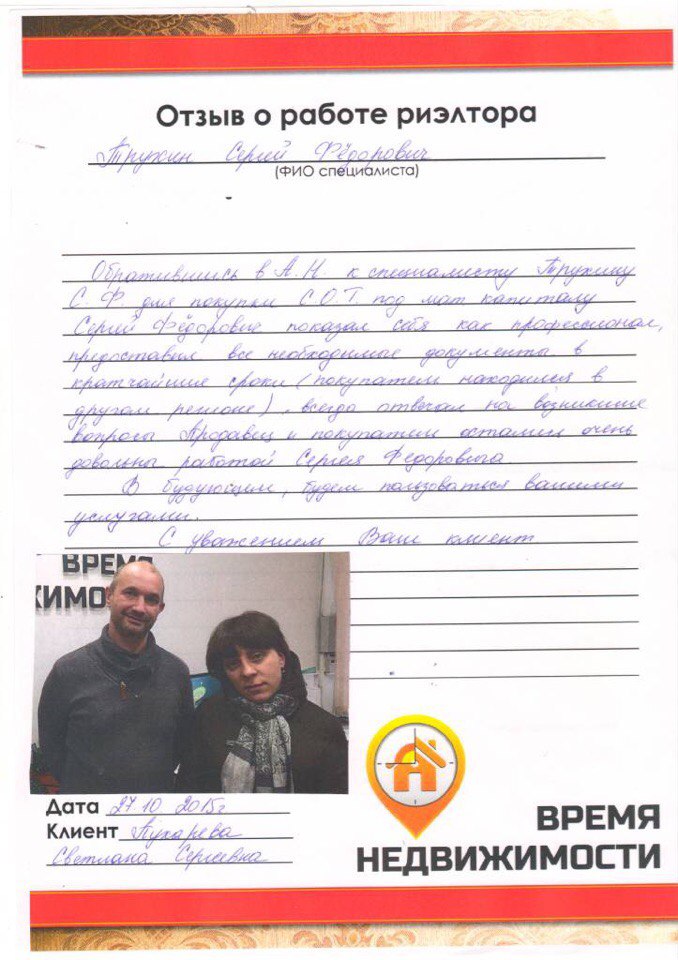 Отзыв о работе риэлтора
Трухин Сергей Фёдорович
(ФИО специалиста)
Обратившись в А.Н. к специалисту Трухину
С.Ф. для покупки С.О.Т. под мат капиталу
Сергей Фёдорович показал себя как профессионал,
предоставил все необходимые документы в
кратчайшие сроки (покупатель находился в
другом регионе), всегда отвечал на возникшие
вопросы Продавец и покупатель остались очень
довольны работой Сергея Федоровича.
В будующем, будем пользоваться вашими
услугами.
С уважением Ваш клиент
ВРЕМ
ЖИМО
Дата 27.10 2015г
Клиент Пухарева
Светлана Сергеевна
ВРЕМЯ
НЕДВИЖИМОСТИ